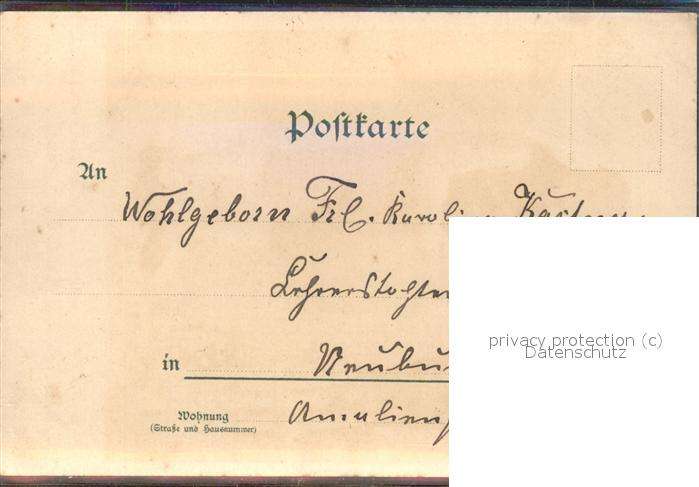 Postkarte
An
Wohlgeborn Frl.
Lehrerstochter
in Neubu
Wohnung
(Straße und Hausnummer)
privacy protection (c)
Datenschutz